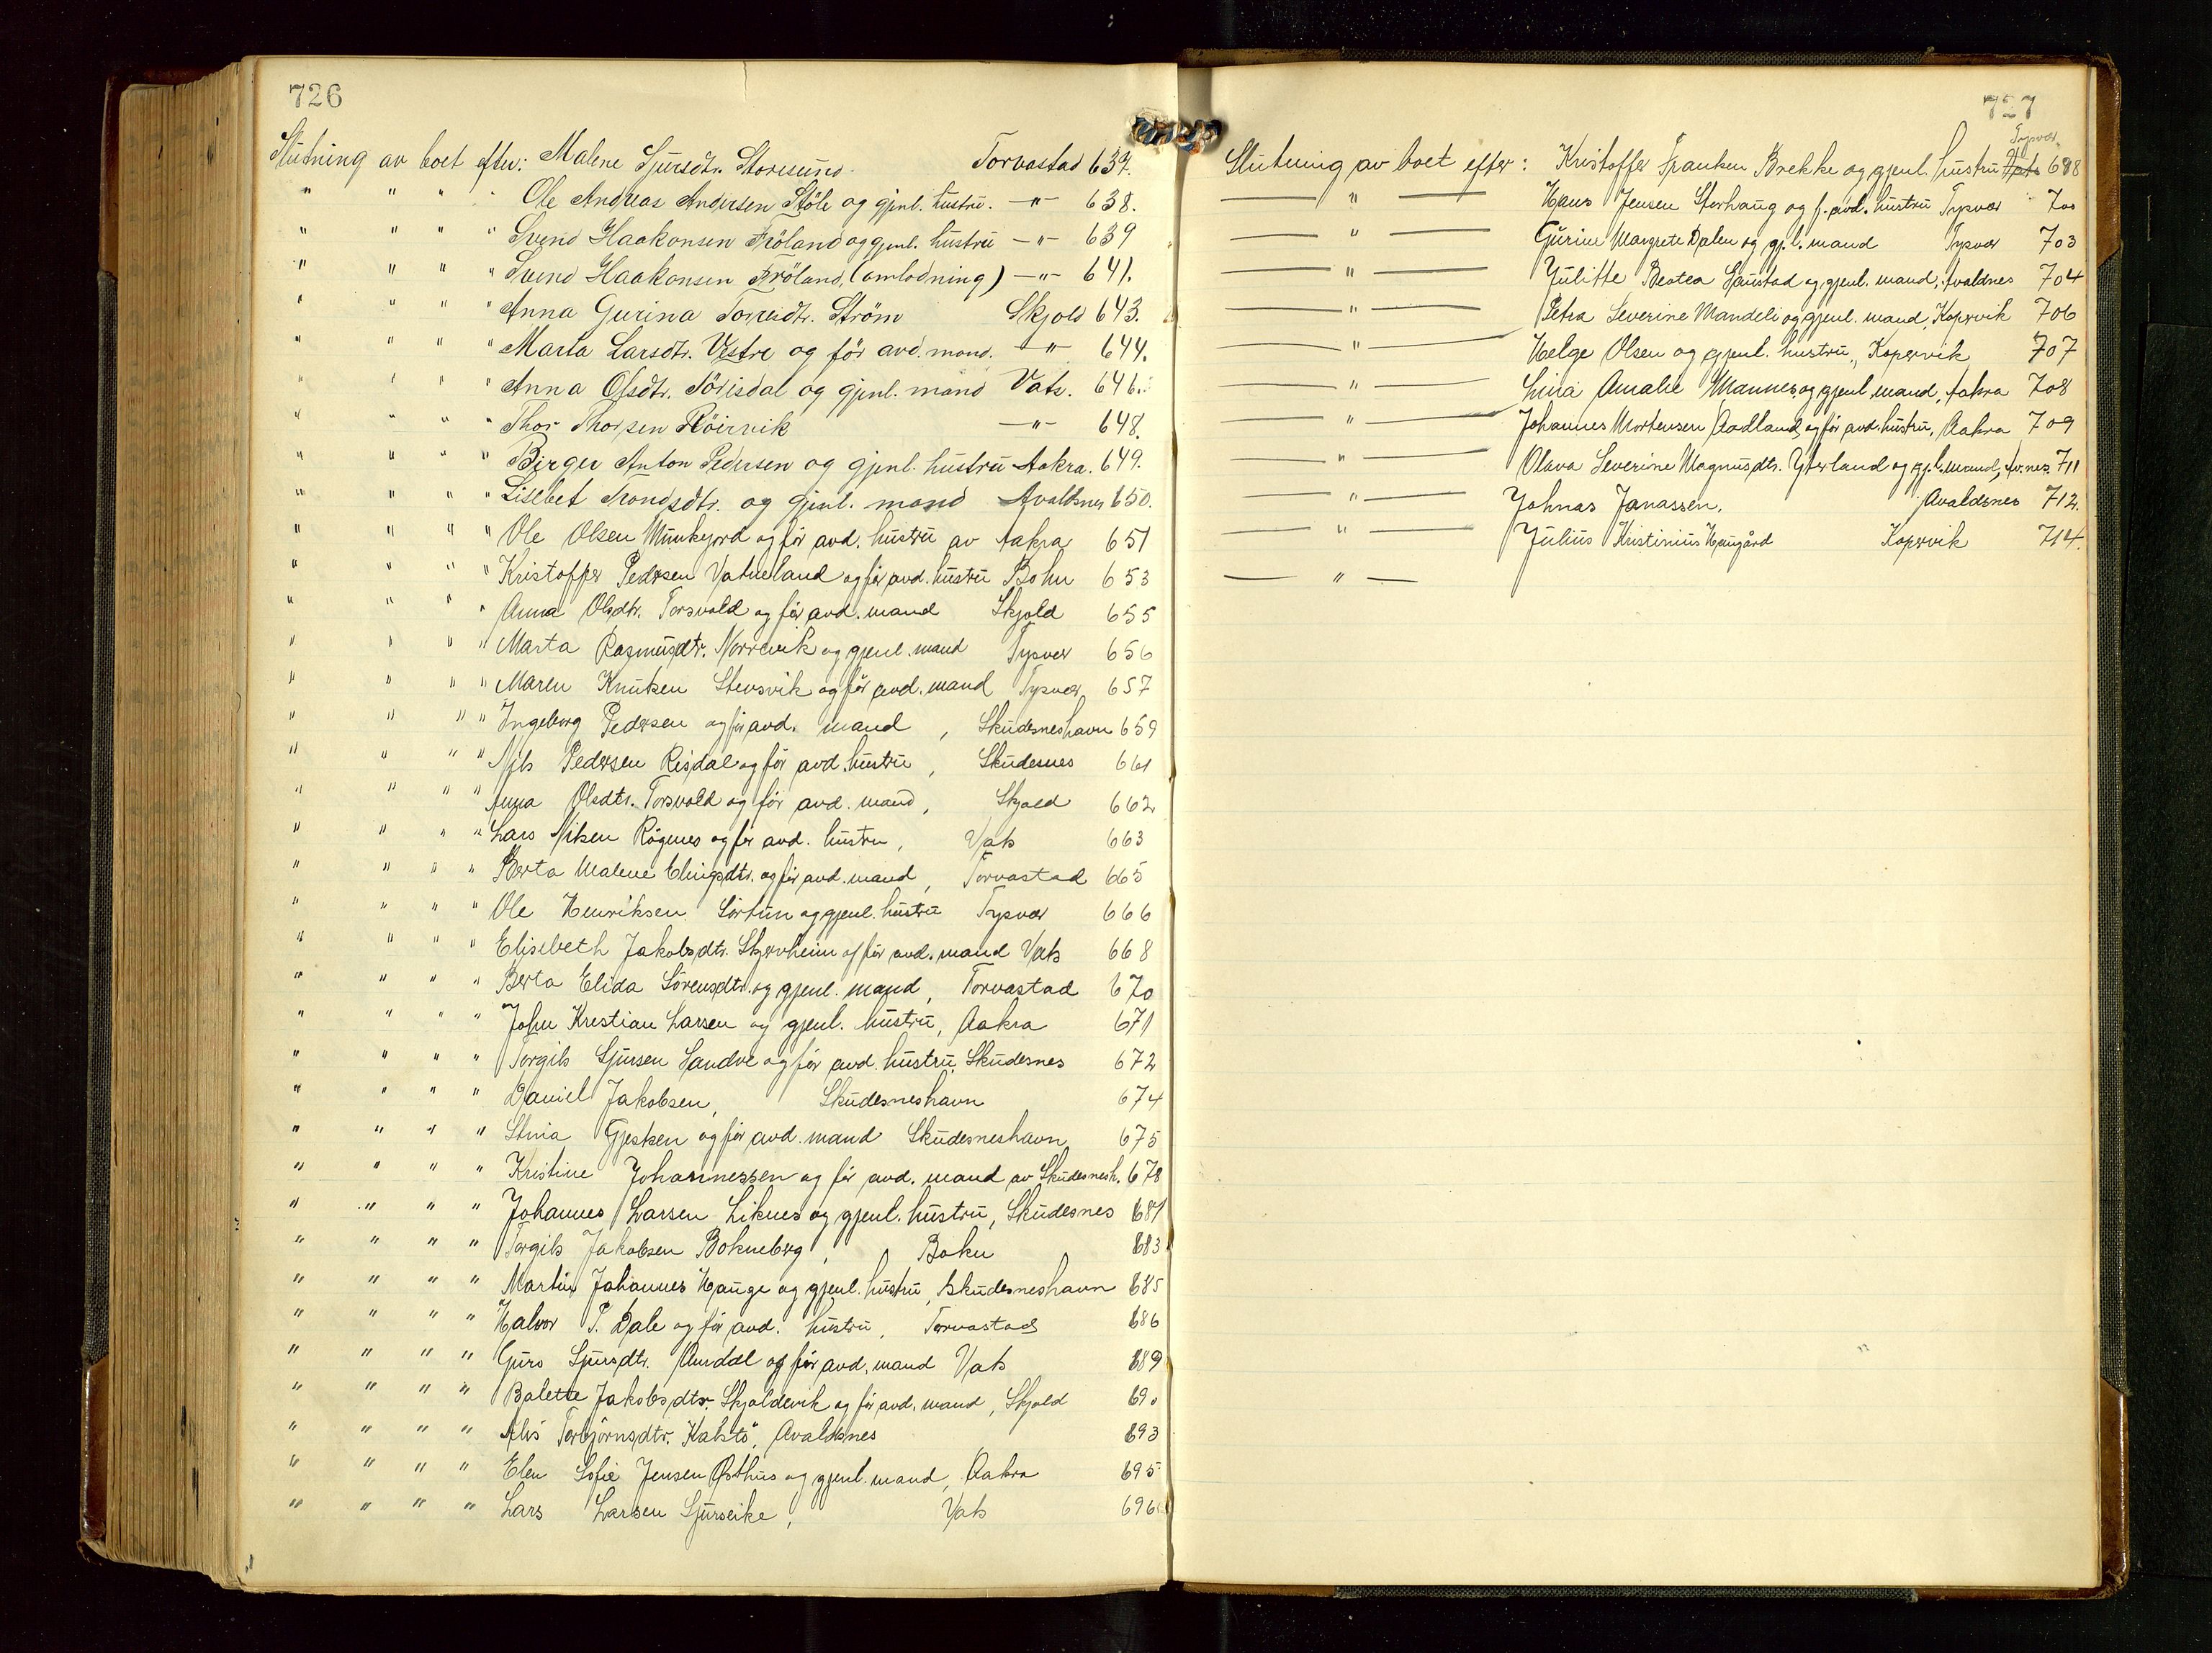 726
Slutning av boet efter: Malene Sjursdtr. Storesund. Torvastad 637.
" " " " Ole Andreas Andersen Stöle og gjenl. hustru. —"— 638.
" " " " Svend Haakonsen Fröland og gjenl. hustru —"— 639
" " " " Svend Haakonsen Fröland, (omlodning) —"— 641.
" " " " Anna Gurina Torresdtr. Ström Skjold 643.
" " " " Marta Larsdtr. Vestre og för avd. mand. —"— 644.
" " " " Anna Olsdtr. Sörisdal og gjenl. mand Vats. 646.
" " " " Thor Thorsen Röirvik —"— 648.
" " " " Birger Anton Pedersen og gjenl. hustru Aakra. 649.
" " " " Lisebet Trondsdtr. og gjenl. mand Avaldsnes 650.
" " " " Ole Olsen Munkejord og för avd. hustru av Aakra 651
" " " " Kristoffer Pedersen Vatneland og för avd. hustru Bokn 653
" " " " Anna Olsdtr. Torsvold og för avd. mand Skjold 655
" " " " Marta Rasmusdtr. Norrevik og gjenl. mand Tysvær 656
" " " " Maren Knutsen Stensvik og för avd. mand Tysvær 657
" " " " Ingeborg Pedersen og för avd. mand, Skudesneshavn 659
" " " " Nils Pedersen Risdal og för avd. hustru, Skudesnes 661
" " " " Anna Olsdtr. Torsvold og för avd. mand, Skjold 662
" " " " Lars Nilsen Rögenes og för avd. hustru, Vats 663
" " " " Berta Malene Elingsdtr. og för avd. mand, Torvastad 665
" " " " Ole Henriksen Sörtun og gjenl. hustru Tysvær 666
" " " " Elisebeth Jakobsdtr. Skjervheim og för avd. mand Vats 668
" " " " Berta Elida Sörensdtr. og gjenl. mand, Torvastad 670
" " " " John Krestian Larsen og gjenl. hustru, Aakra 671
" " " " Torgils Sjursen Sandve og för avd. hustru, Skudesnes 672
" " " " Daniel Jakobsen, Skudesneshavn 674
" " " " Stina Gjesken og för avd. mand Skudesneshavn 675
" " " " Kristine Johannessen og för avd. mand av Skudesnesh. 678
" " " " Johannes Larsen Liknes og gjenl. hustru, Skudesnes 681
" " " " Torgils Jakobsen Bokneberg, Bokn 683
" " " " Martin Johannes Hauge og gjenl. hustru, Skudesneshavn 685
" " " " Halvor P. Dale og för avd. hustru, Torvastad 686
" " " " Guro Sjursdtr. Aurdal og för avd. mand Vats 689
" " " " Balette Jakobsdtr. Skjoldevik og för avd. mand, Skjold 690
" " " " Alis Torbjörnsdtr. Kalstö, Avaldsnes 693
" " " " Elen Sofie Jensen Østhus og gjenl. mand, Aakra 695
" " " " Lars Larsen Sjurseike, Vats 696
727
Tysvær
Slutning av boet efter: Kristoffer Franken Brekke og gjenl. hustru Vats 698
— " — Hans Jensen Storhaug og f. avd. hustru Tysvær 700
— " — Gurine Margrete Dalen og gj.l. mand Tysvær 703
— " — Julitte Beatea Gaustad og gjenl. mand, Avaldnes 704
— " — Petra Severine Mandeli og gjenl. mand, Kopervik 706
— " — Helge Olsen og gjenl. hustru,, Kopervik 707
— " — Lina Amalie Mannes og gjenl mand, Aakra 708
— " — Johannes Mortensen Aadland, og för avd. hustru, Aakra 709
— " — Olava Severine Magnusdtr. Ytreland og gj.l. mand, Av.nes 711
— " — Johnas Janassen, Avaldsnes 712.
— " — Julius Kristinius Haugård Kopervik 714.
— " —